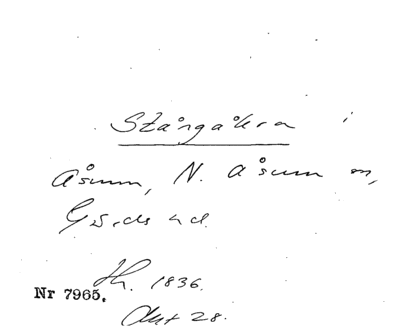 Stångåkra i
Åsum, N. Åsum sn,
Gärds hd.
Lh. 1836.
Nr 7965.
Akt 28.